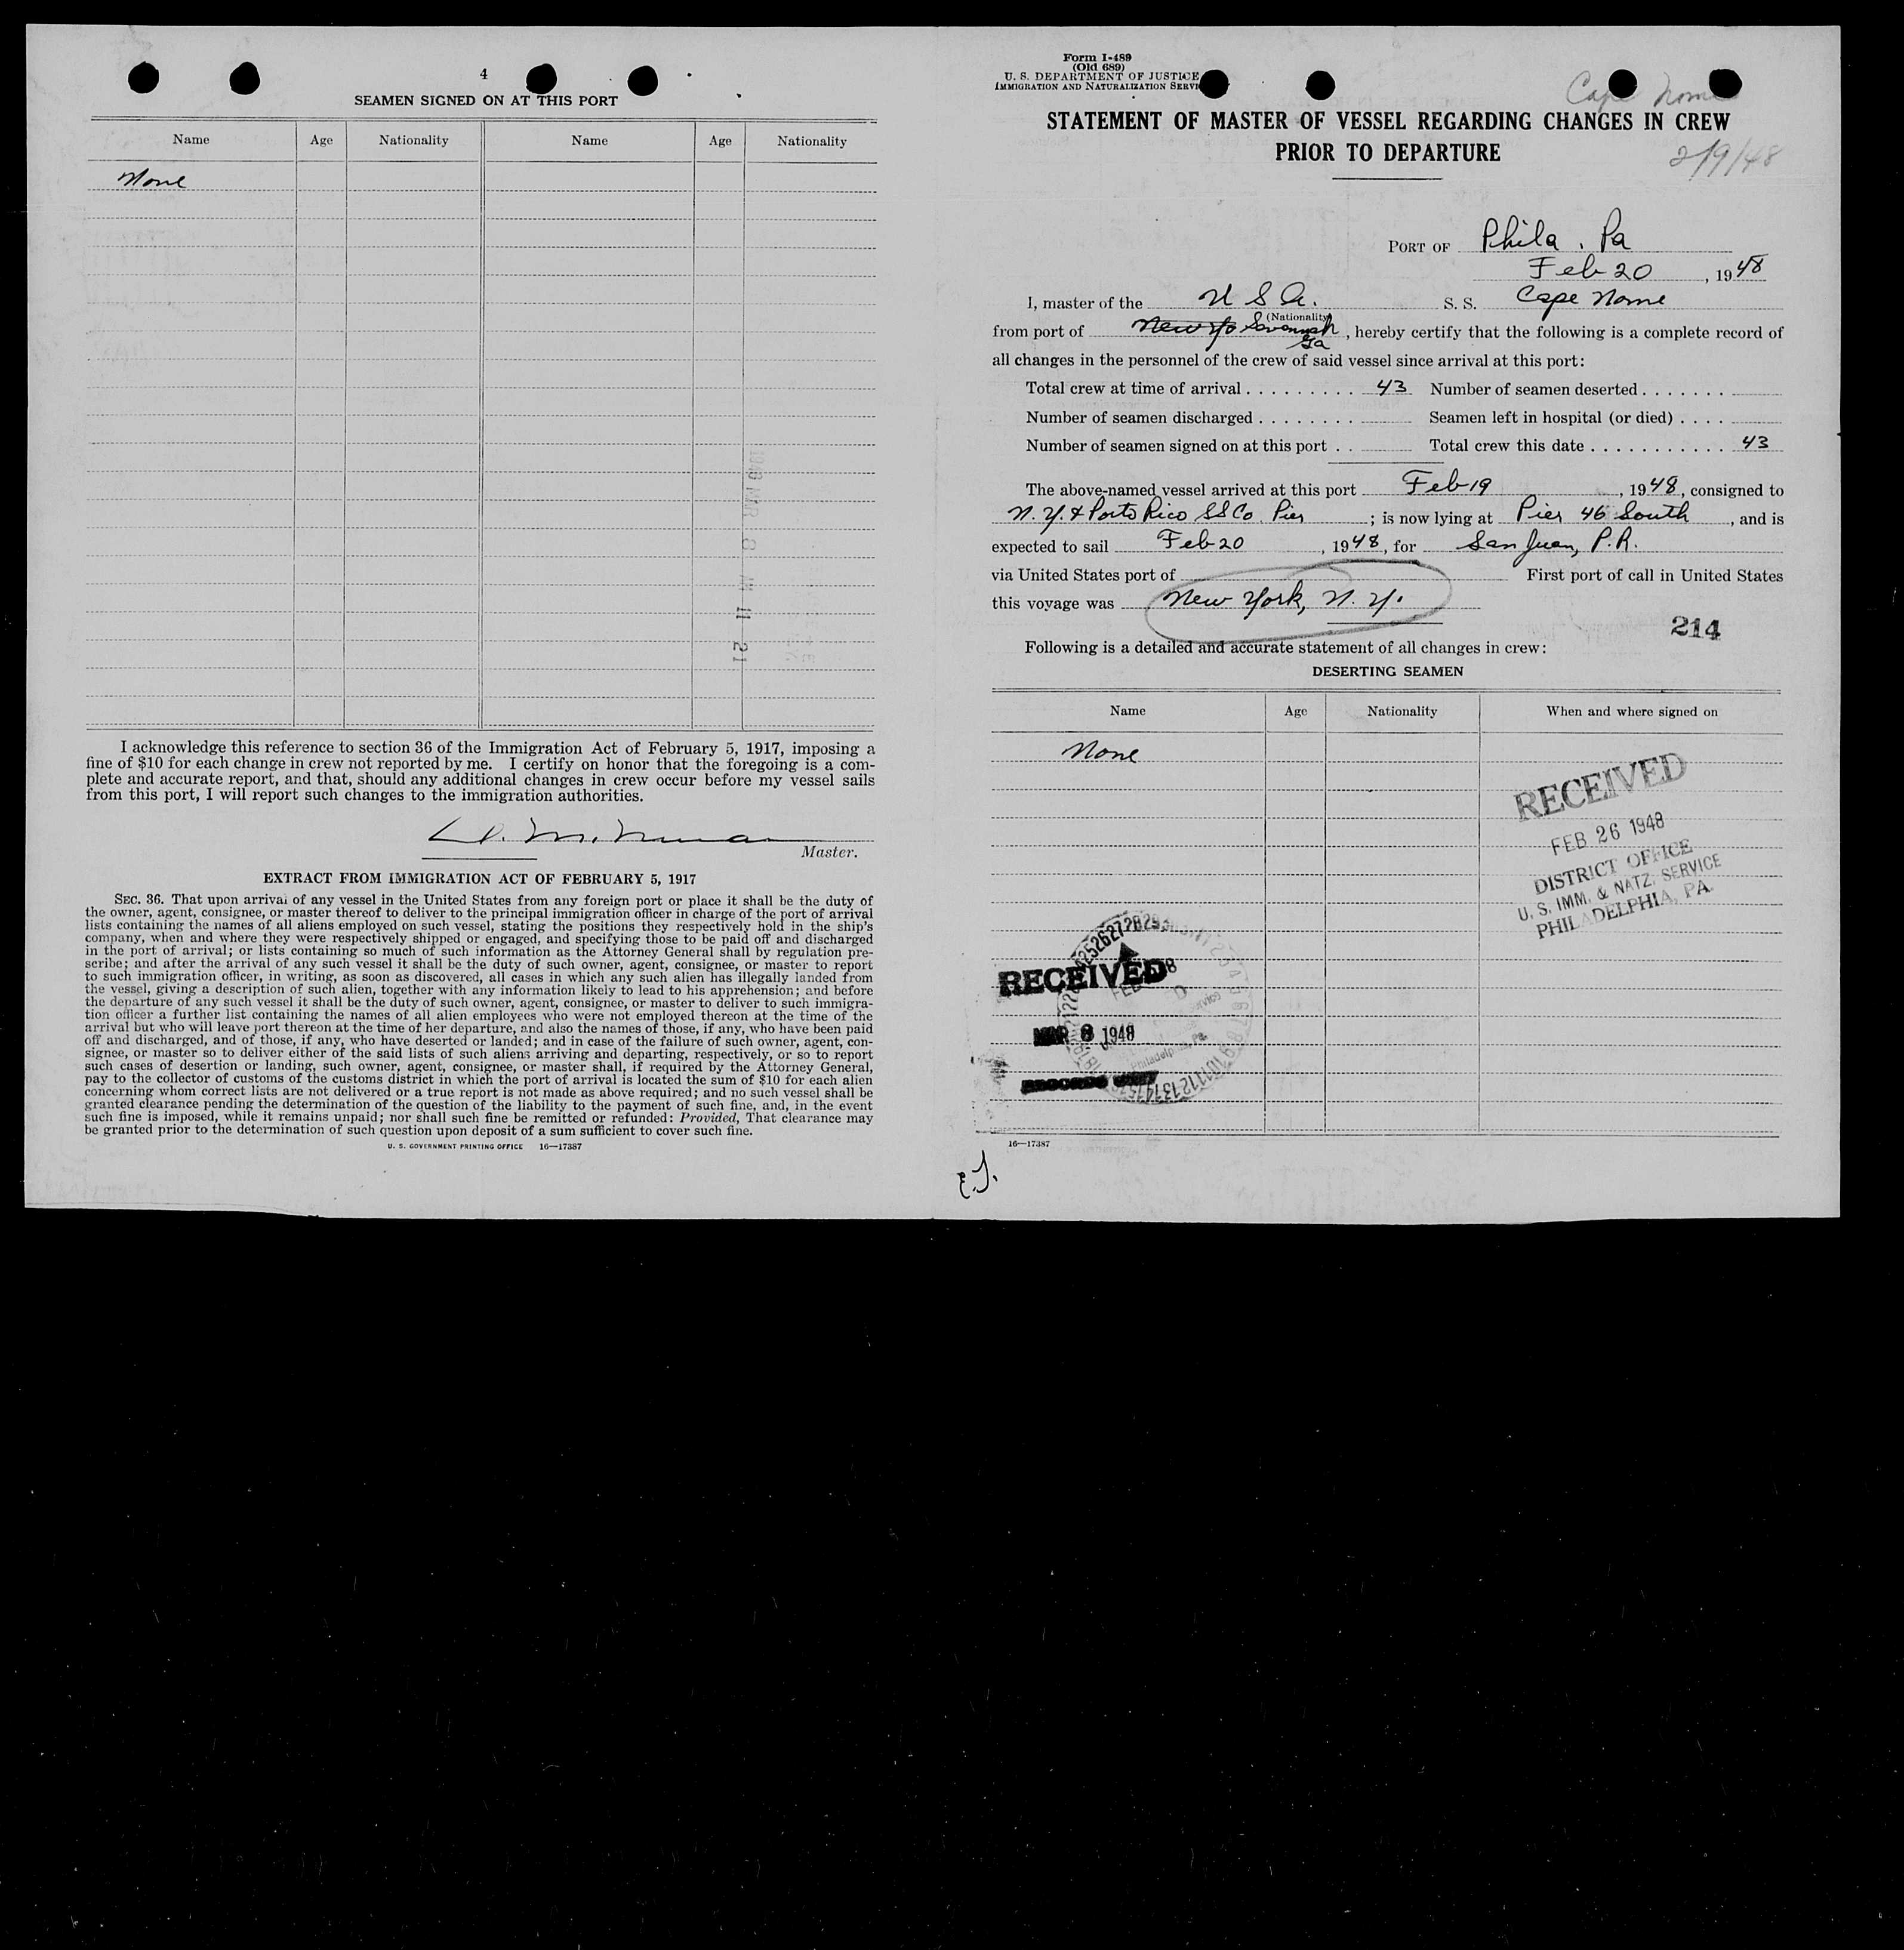 4
SEAMEN SIGNED ON AT THIS PORT
Name Age Nationality Name Age Nationality
None
I acknowledge this reference to section 36 of the Immigration Act of February 5, 1917, imposing a
fine of $10 for each change in crew not reported by me. I certify on honor that the foregoing is a com-
plete and accurate report, and that, should any additional changes in crew occur before my vessel sails
from this port, I will report such changes to the immigration authorities.
Master.
EXTRACT FROM IMMIGRATION ACT OF FEBRUARY 5, 1917
SEC. 36. That upon arrival of any vessel in the United States from any foreign port or place it shall be the duty of
the owner, agent, consignee, or master thereof to deliver to the principal immigration officer in charge of the port of arrival
lists containing the names of all aliens employed on such vessel, stating the positions they respectively hold in the ship's
company, when and where they were respectively shipped or engaged, and specifying those to be paid off and discharged
in the port of arrival; or lists containing so much of such information as the Attorney General shall by regulation pre-
scribe; and after the arrival of any such vessel it shall be the duty of such owner, agent, consignee, or master to report
to such immigration officer, in writing, as soon as discovered, all cases in which any such alien has illegally landed from
the vessel, giving a description of such alien, together with any information likely to lead to his apprehension; and before
the departure of any such vessel it shall be the duty of such owner, agent, consignee, or master to deliver to such immigra-
tion officer a further list containing the names of all alien employees who were not employed thereon at the time of the
arrival but who will leave port thereon at the time of her departure, and also the names of those, if any, who have been paid
off and discharged, and of those, if any, who have deserted or landed; and in case of the failure of such owner, agent, con-
signee, or master so to deliver either of the said lists of such aliens arriving and departing, respectively, or so to report
such cases of desertion or landing, such owner, agent, consignee, or master shall, if required by the Attorney General,
pay to the collector of customs of the customs district in which the port of arrival is located the sum of $10 for each alien
concerning whom correct lists are not delivered or a true report is not made as above required; and no such vessel shall be
granted clearance pending the determination of the question of the liability to the payment of such fine, and, in the event
such fine is imposed, while it remains unpaid; nor shall such fine be remitted or refunded: Provided, That clearance may
be granted prior to the determination of such question upon deposit of a sum sufficient to cover such fine.
U. S. GOVERNMENT PRINTING OFFICE 16—17387
Form I-489
(Old 689)
U. S. DEPARTMENT OF JUSTICE
IMMIGRATION AND NATURALIZATION SERVI
Cape Nome
STATEMENT OF MASTER OF VESSEL REGARDING CHANGES IN CREW
PRIOR TO DEPARTURE
2/9/48
PORT OF Phila. Pa
Feb 20, 1948
I, master of the U S A. S. S. Cape Nome
(Nationality)
from port of New Yo Savannah Ga, hereby certify that the following is a complete record of
all changes in the personnel of the crew of said vessel since arrival at this port:
Total crew at time of arrival . . . . . . . . . 43 Number of seamen deserted . . . . . . .
Number of seamen discharged . . . . . . . . Seamen left in hospital (or died) . . . .
Number of seamen signed on at this port . . Total crew this date . . . . . . . . . . . 43
The above-named vessel arrived at this port Feb 19, 1948, consigned to
N. Y. & Porto Rico SS Co. Pier; is now lying at Pier 46 South, and is
expected to sail Feb 20, 1948, for San Juan, P.R.
via United States port of First port of call in United States
this voyage was New York, N. Y.
214
Following is a detailed and accurate statement of all changes in crew:
DESERTING SEAMEN
Name Age Nationality When and where signed on
None
RECEIVED
FEB 26 1948
DISTRICT OFFICE
U. S. IMM. & NATZ. SERVICE
PHILADELPHIA, PA.
RECEIVED
MAR 8 1948
RECORDS UNIT
16—17387
E.J.